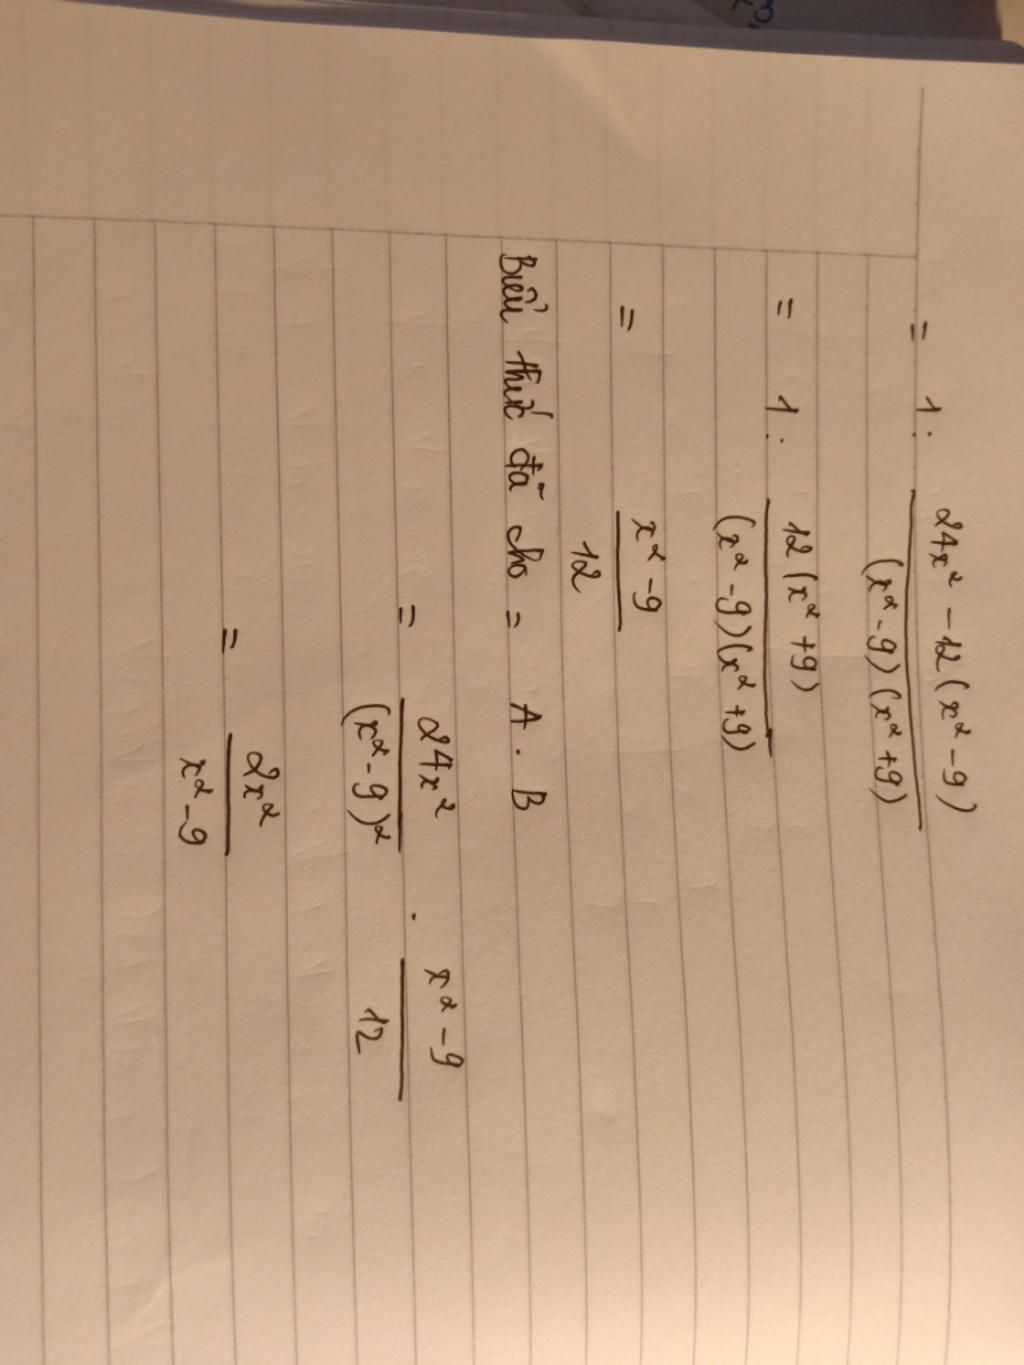 = 1 : \frac{24x² - 12(x² - 9)}{(x² - 9)(x² + 9)}
= 1 : \frac{12(x² + 9)}{(x² - 9)(x² + 9)}
= \frac{x² - 9}{12}
Biểu thức đã cho = A . B
= \frac{24x²}{(x² - 9)²} . \frac{x² - 9}{12}
= \frac{2x²}{x² - 9}